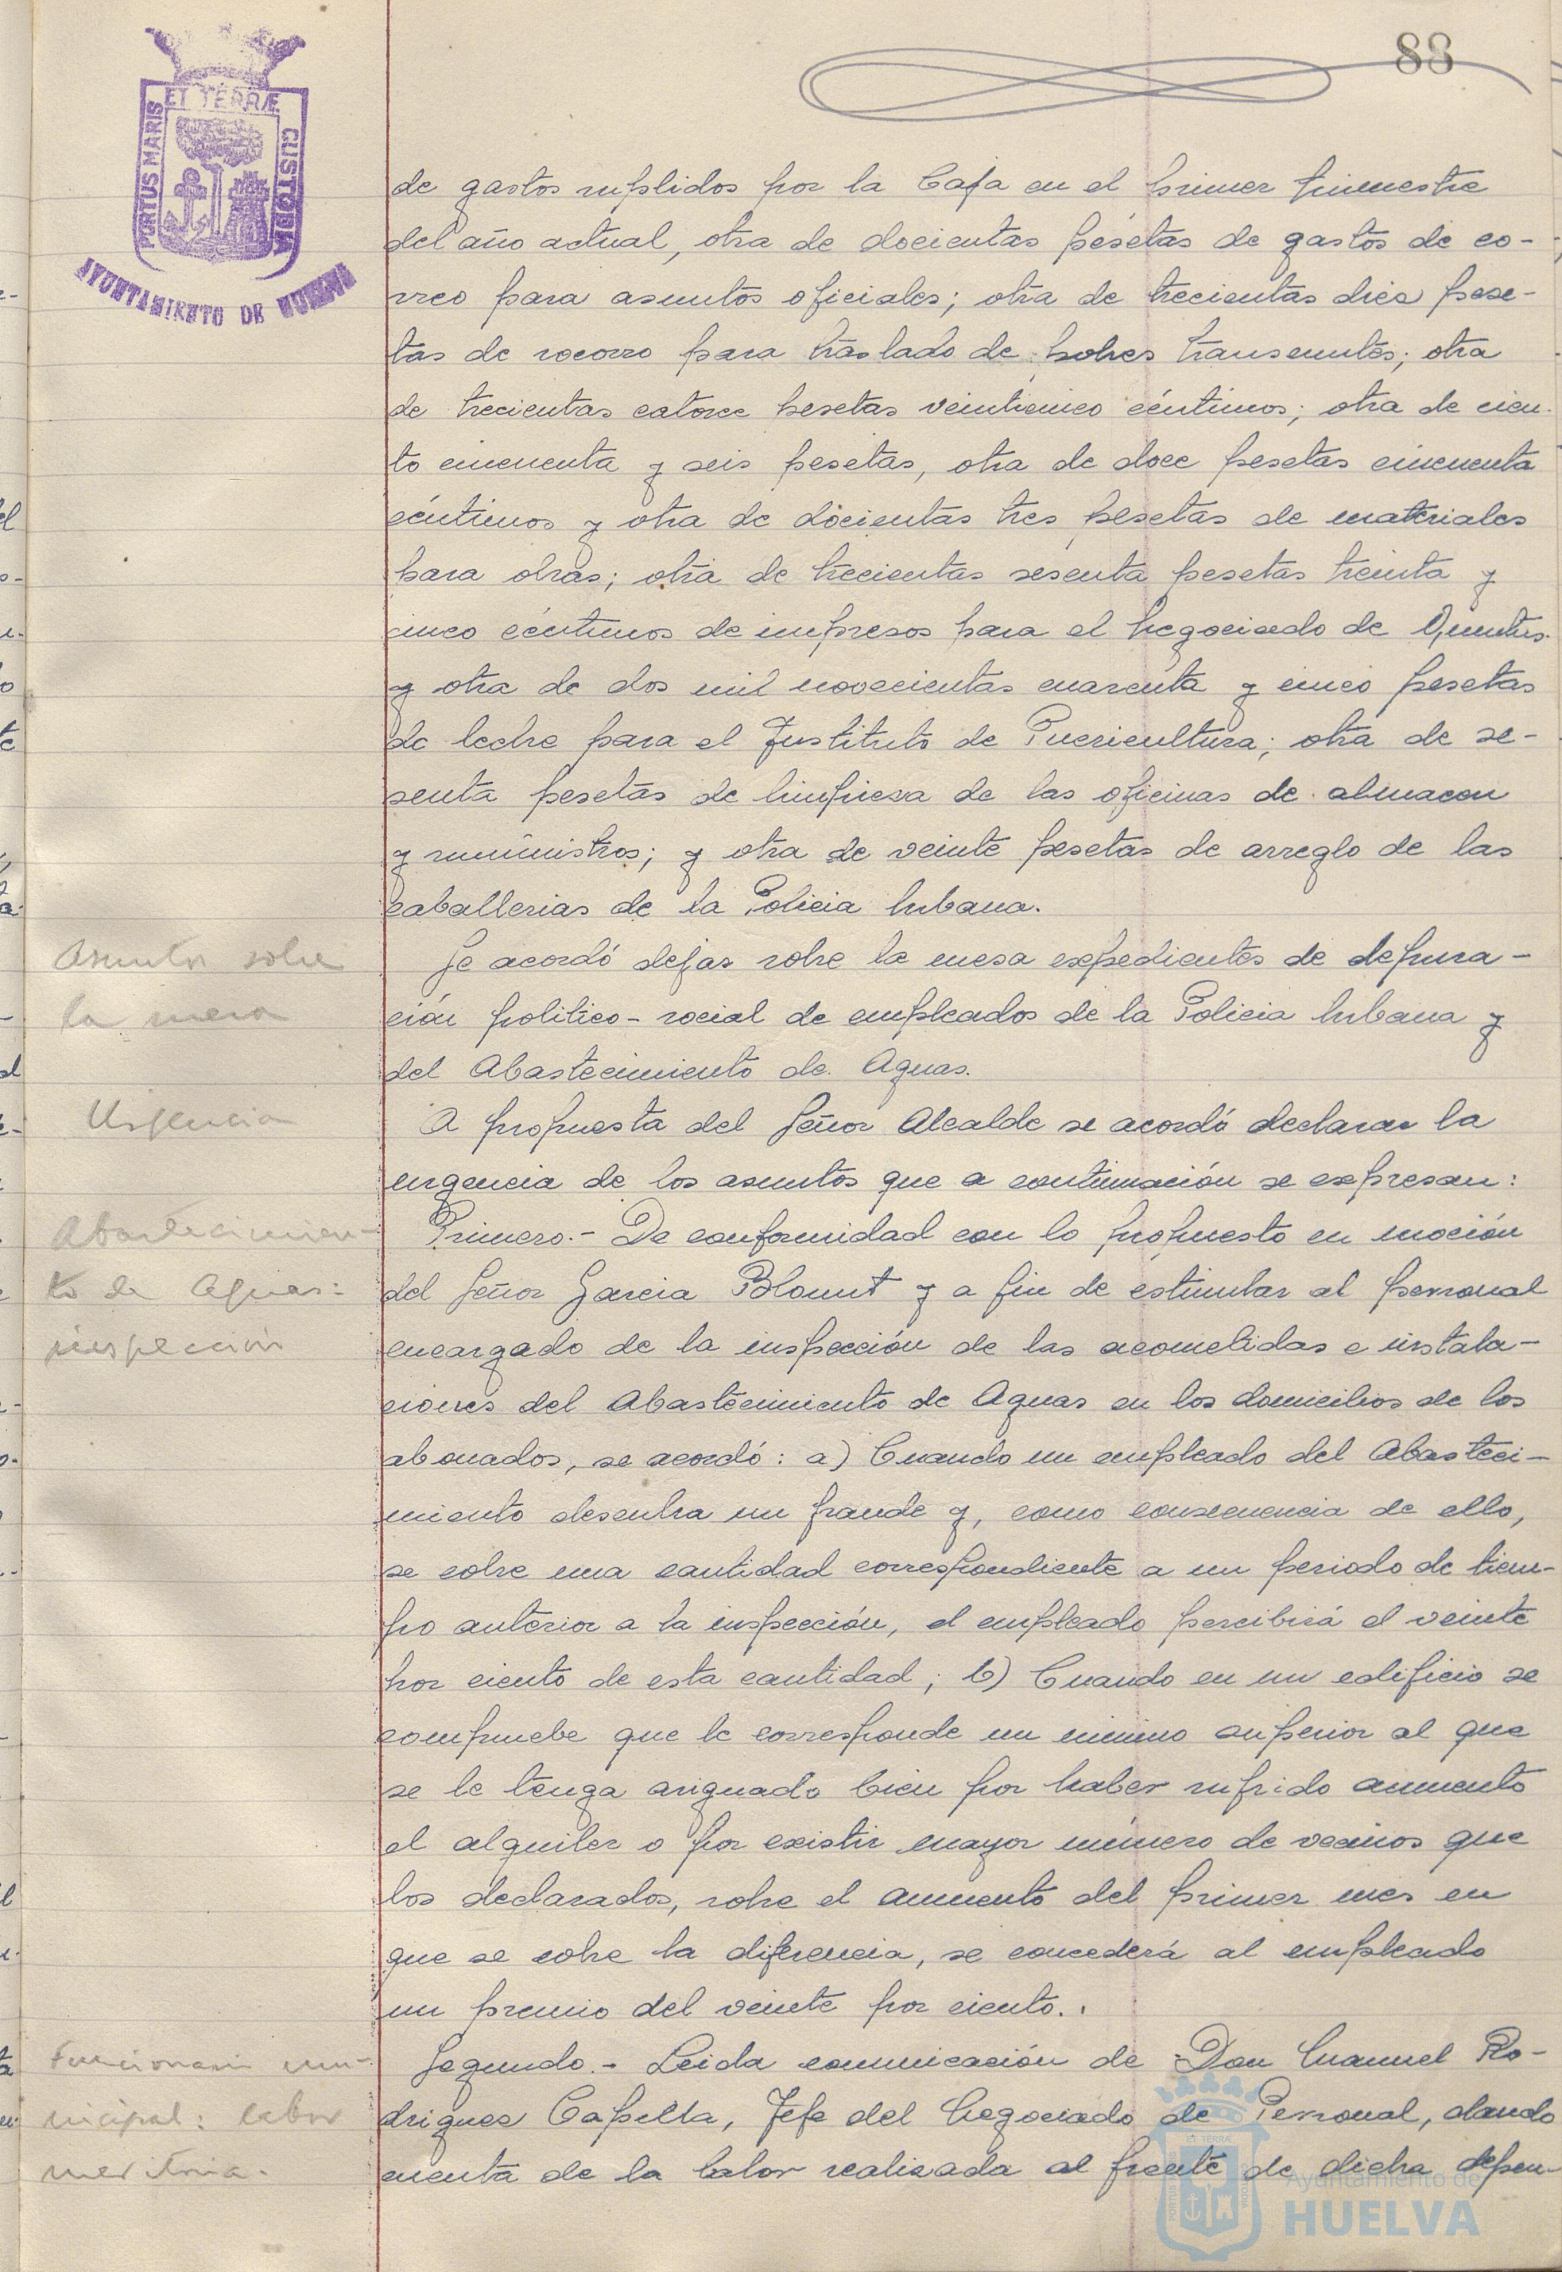 88
ET TERRÆ
PORTUS MARIS
CUSTODIA
AYUNTAMIENTO DE HUELVA
de gastos suplidos por la Caja en el primer trimestre
del año actual, otra de docientas pesetas de gastos de co-
rreo para asuntos oficiales; otra de trecientas diez pese-
tas de socorro para traslado de pobres transeuntes; otra
de trecientas catorce pesetas veinticinco céntimos; otra de cien-
to cincuenta y seis pesetas, otra de doce pesetas cincuenta
céntimos y otra de docientas tres pesetas de materiales
para obras; otra de trecientas sesenta pesetas treinta y
cinco céntimos de impresos para el Negociado de Quintas
y otra de dos mil novecientas cuarenta y cinco pesetas
de leche para el Instituto de Puericultura; otra de se-
senta pesetas de limpieza de las oficinas de almacen
y suministros; y otra de veinte pesetas de arreglo de las
caballerias de la Policia Urbana.
Asuntos sobre
la mesa
Se acordó dejar sobre la mesa expedientes de depura-
ción politico-social de empleados de la Policia Urbana y
del Abastecimiento de Aguas.
Urgencia
A propuesta del Señor Alcalde se acordó declarar la
urgencia de los asuntos que a continuación se expresan:
Abastecimien-
to de Aguas:
inspección
Primero.- De conformidad con lo propuesto en moción
del Señor Garcia Blount y a fin de estimular al personal
encargado de la inspección de las acometidas e instala-
ciones del Abastecimiento de Aguas en los domicilios de los
abonados, se acordó: a) Cuando un empleado del Abasteci-
miento descubra un fraude y, como consecuencia de ello,
se cobre una cantidad correspondiente a un periodo de tiem-
po anterior a la inspección, el empleado percibirá el veinte
por ciento de esta cantidad; b) Cuando en un edificio se
compruebe que le corresponde un minimo superior al que
se le tenga asignado bien por haber sufrido aumento
el alquiler o por existir mayor número de vecinos que
los declarados, sobre el aumento del primer mes en
que se cobre la diferencia, se concederá al empleado
un premio del veinte por ciento.
Funcionario mu-
nicipal: labor
meritoria.
Segundo.- Leida comunicación de Don Manuel Ro-
driguez Capella, Jefe del Negociado de Personal, dando
cuenta de la labor realizada al frente de dicha depen-
Ayuntamiento de
HUELVA